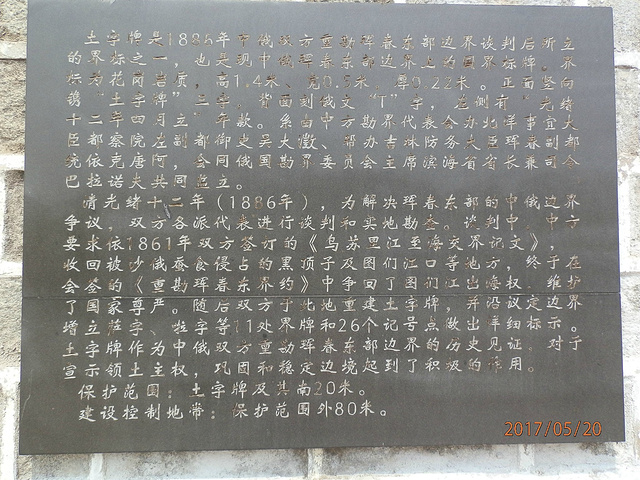 土字牌是1886年中俄双方重勘珲春东部边界谈判后所立
的界标之一,也是中俄珲春边界上的国界标牌。
界为花岗岩质,高1.4米、宽0.5米、厚0.22米。正面竖向
镌"土字牌"三字。背面刻俄文"T"字,左侧有"光绪
十二年四月立"年款。系由中方勘界代表会办北洋事宜大
臣都察院左副都御史吴大澂、帮办吉林防务大臣珲春副都
统依克唐阿,会同俄国勘界委员会主席滨海省省长兼司令
巴拉诺夫共同监立。
清光绪十二年(1886年),为解决珲春东部的中俄边界
争议,双方各派代表进行谈判和实地勘查。谈判中,中方
要求依1861年双方签订的《乌苏里江至海交界记文》,
收回被沙俄蚕食侵占的黑顶子及图们江口等地方,终于在
会签的《重勘珲春东界约》中争回了图们江出海权,维护
了国家尊严。随后双方于此地重建土字牌,并沿议定边界
增立萨字、啦字等11处界牌和26个记号点做出详细标示。
土字牌作为中俄双方重勘珲春东部边界的历史见证,对于
宣示领土主权,巩固和稳定边境起到了积极的作用。
保护范围:土字牌及其南20米。
建设控制地带:保护范围外80米。
2017/05/20